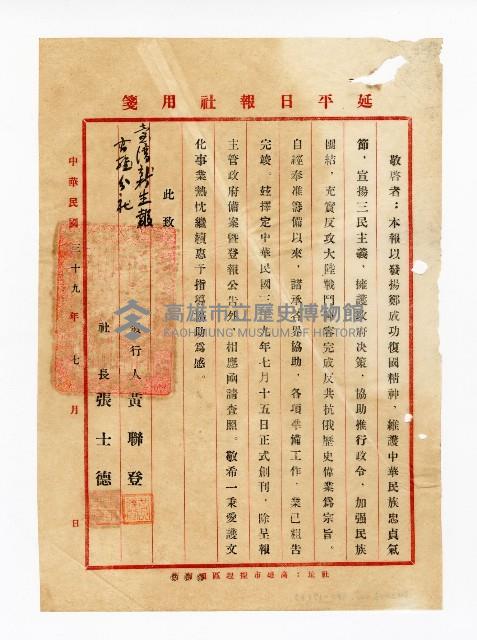 延平日報社用箋
敬啓者：本報以發揚鄭成功復國精神，維護中華民族忠貞氣
節，宣揚三民主義，擁護政府決策，協助推行政令，加强民族
團結，充實反攻大陸戰鬥內容完成反共抗俄歷史偉業爲宗旨。
自經奉准籌備以來，諸承各界協助，各項準備工作，業已粗告
完竣。茲擇定中華民國三十九年七月十五日正式創刊，除呈報
主管政府備案暨登報公告外，相應函請查照。敬希一秉愛護文
化事業熱忱繼續惠予指導協助爲感。
此致
臺灣新生報
高雄分社
發行人黃聯登
社長張士德
中華民國三十九年七月 日
社址：高雄市鹽埕區
高雄市立歷史博物館
KAOHSIUNG MUSEUM OF HISTORY